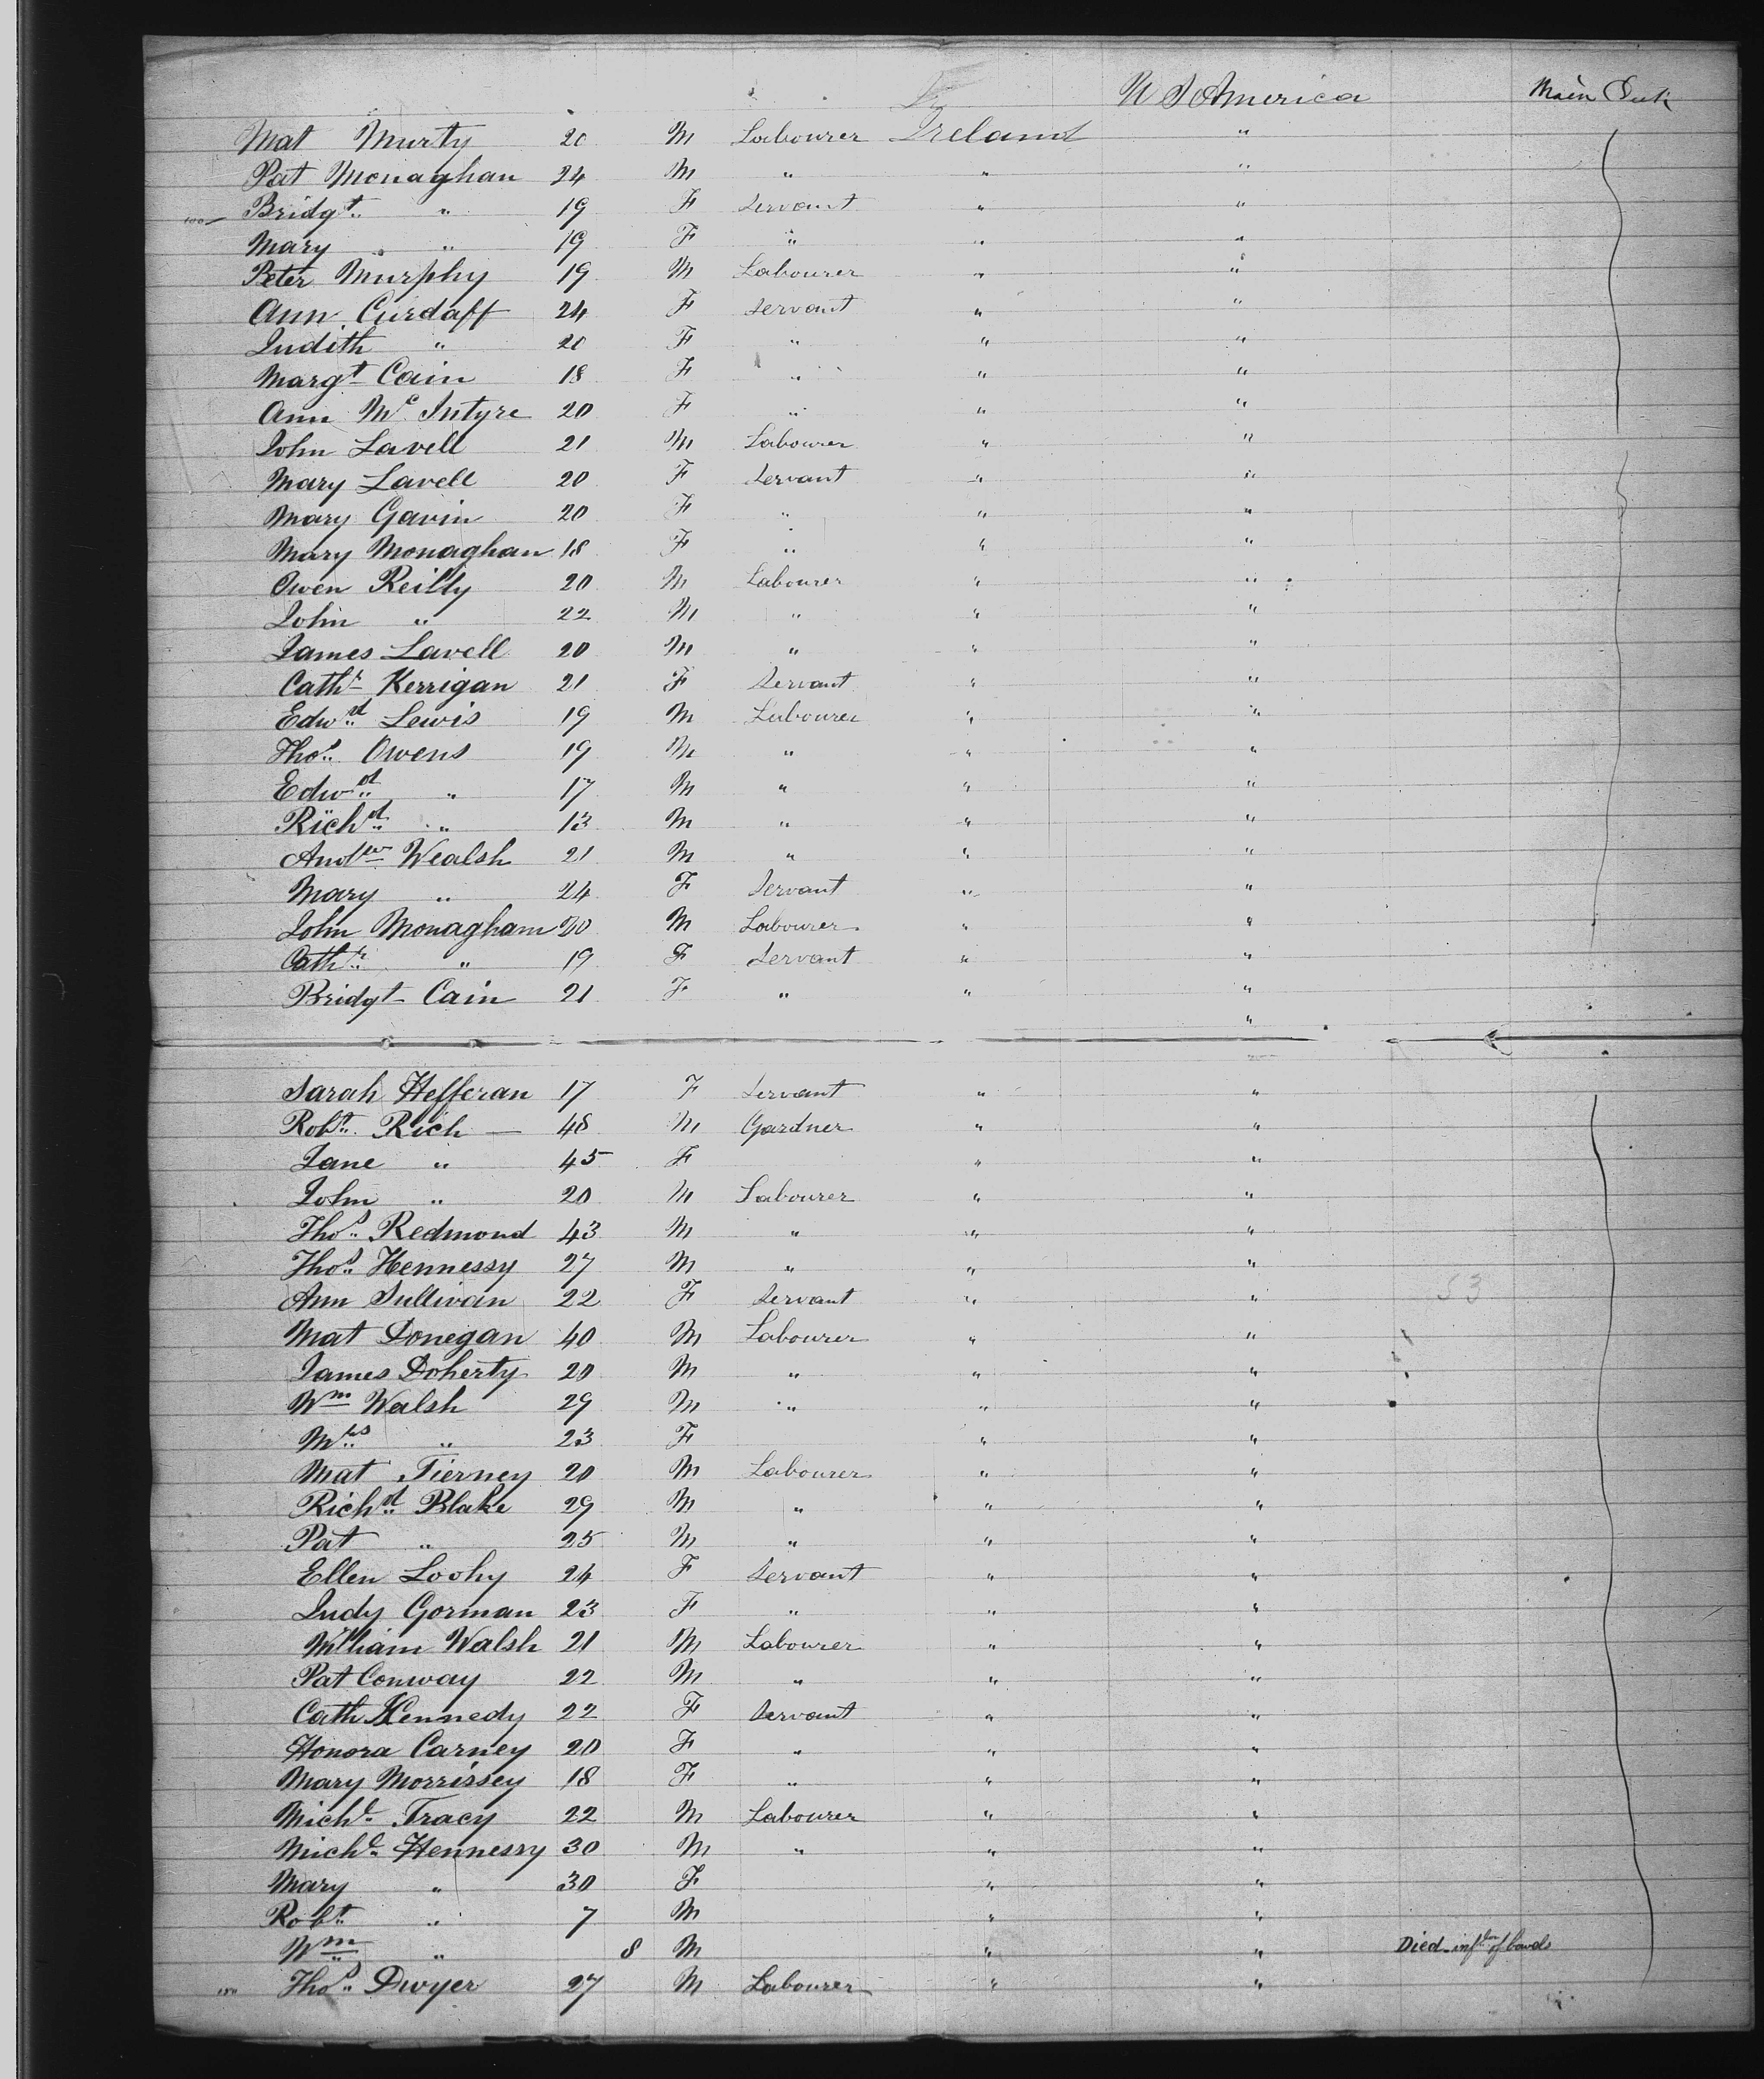 U S America Main Deck
Mat Murty 20 M Labourer Ireland "
Pat Monaghan 24 M " " "
100 Bridgt. " 19 F Servant " "
Mary " 19 F " " "
Peter Murphy 19 M Labourer " "
Ann Curdaff 24 F Servant " "
Judith " 20 F " " "
Margt Cain 18 F " " "
Ann Mc Intyre 20 F " " "
John Lavell 21 M Labourer " "
Mary Lavell 20 F Servant " "
Mary Gavin 20 F " " "
Mary Monaghan 18 F " " "
Owen Reilly 20 M Labourer " "
John " 22 M " " "
James Lavell 20 M " " "
Cathr Kerrigan 21 F Servant " "
Edwd Lewis 19 M Labourer " "
Thos Owens 19 M " " "
Edwd " 17 M " " "
Richd " 13 M " " "
Andrew Wealsh 21 M " " "
Mary " 24 F Servant " "
John Monagham 20 M Labourer " "
Cathr " 19 F Servant " "
Bridgt Cain 21 F " " "
"
Sarah Hefferan 17 F Servant " "
Robt. Rich — 48 M Gardner " "
Jane " 45 F " "
John " 20 M Labourer " "
Thos Redmond 43 M " " "
Thos Hennessy 27 M " " "
Ann Sullivan 22 F Servant " " 53
Mat Donegan 40 M Labourer " "
James Doherty 20 M " " "
Wm Walsh 29 M " " "
Mrs " 23 F " "
Mat Tierney 20 M Labourer " "
Richd Blake 29 M " " "
Pat " 25 M " " "
Ellen Loohy 24 F Servant " "
Judy Gorman 23 F " " "
William Walsh 21 M Labourer " "
Pat Conway 22 M " " "
Cath Kennedy 22 F Servant " "
Honora Carney 20 F " " "
Mary Morrissey 18 F " " "
Michl Tracy 22 M Labourer " "
Michl Hennessy 30 M " " "
Mary " 30 F " "
Robt " 7 M " "
Wm " 8 M " " Died of
150 Thos Dwyer 27 M Labourer " "